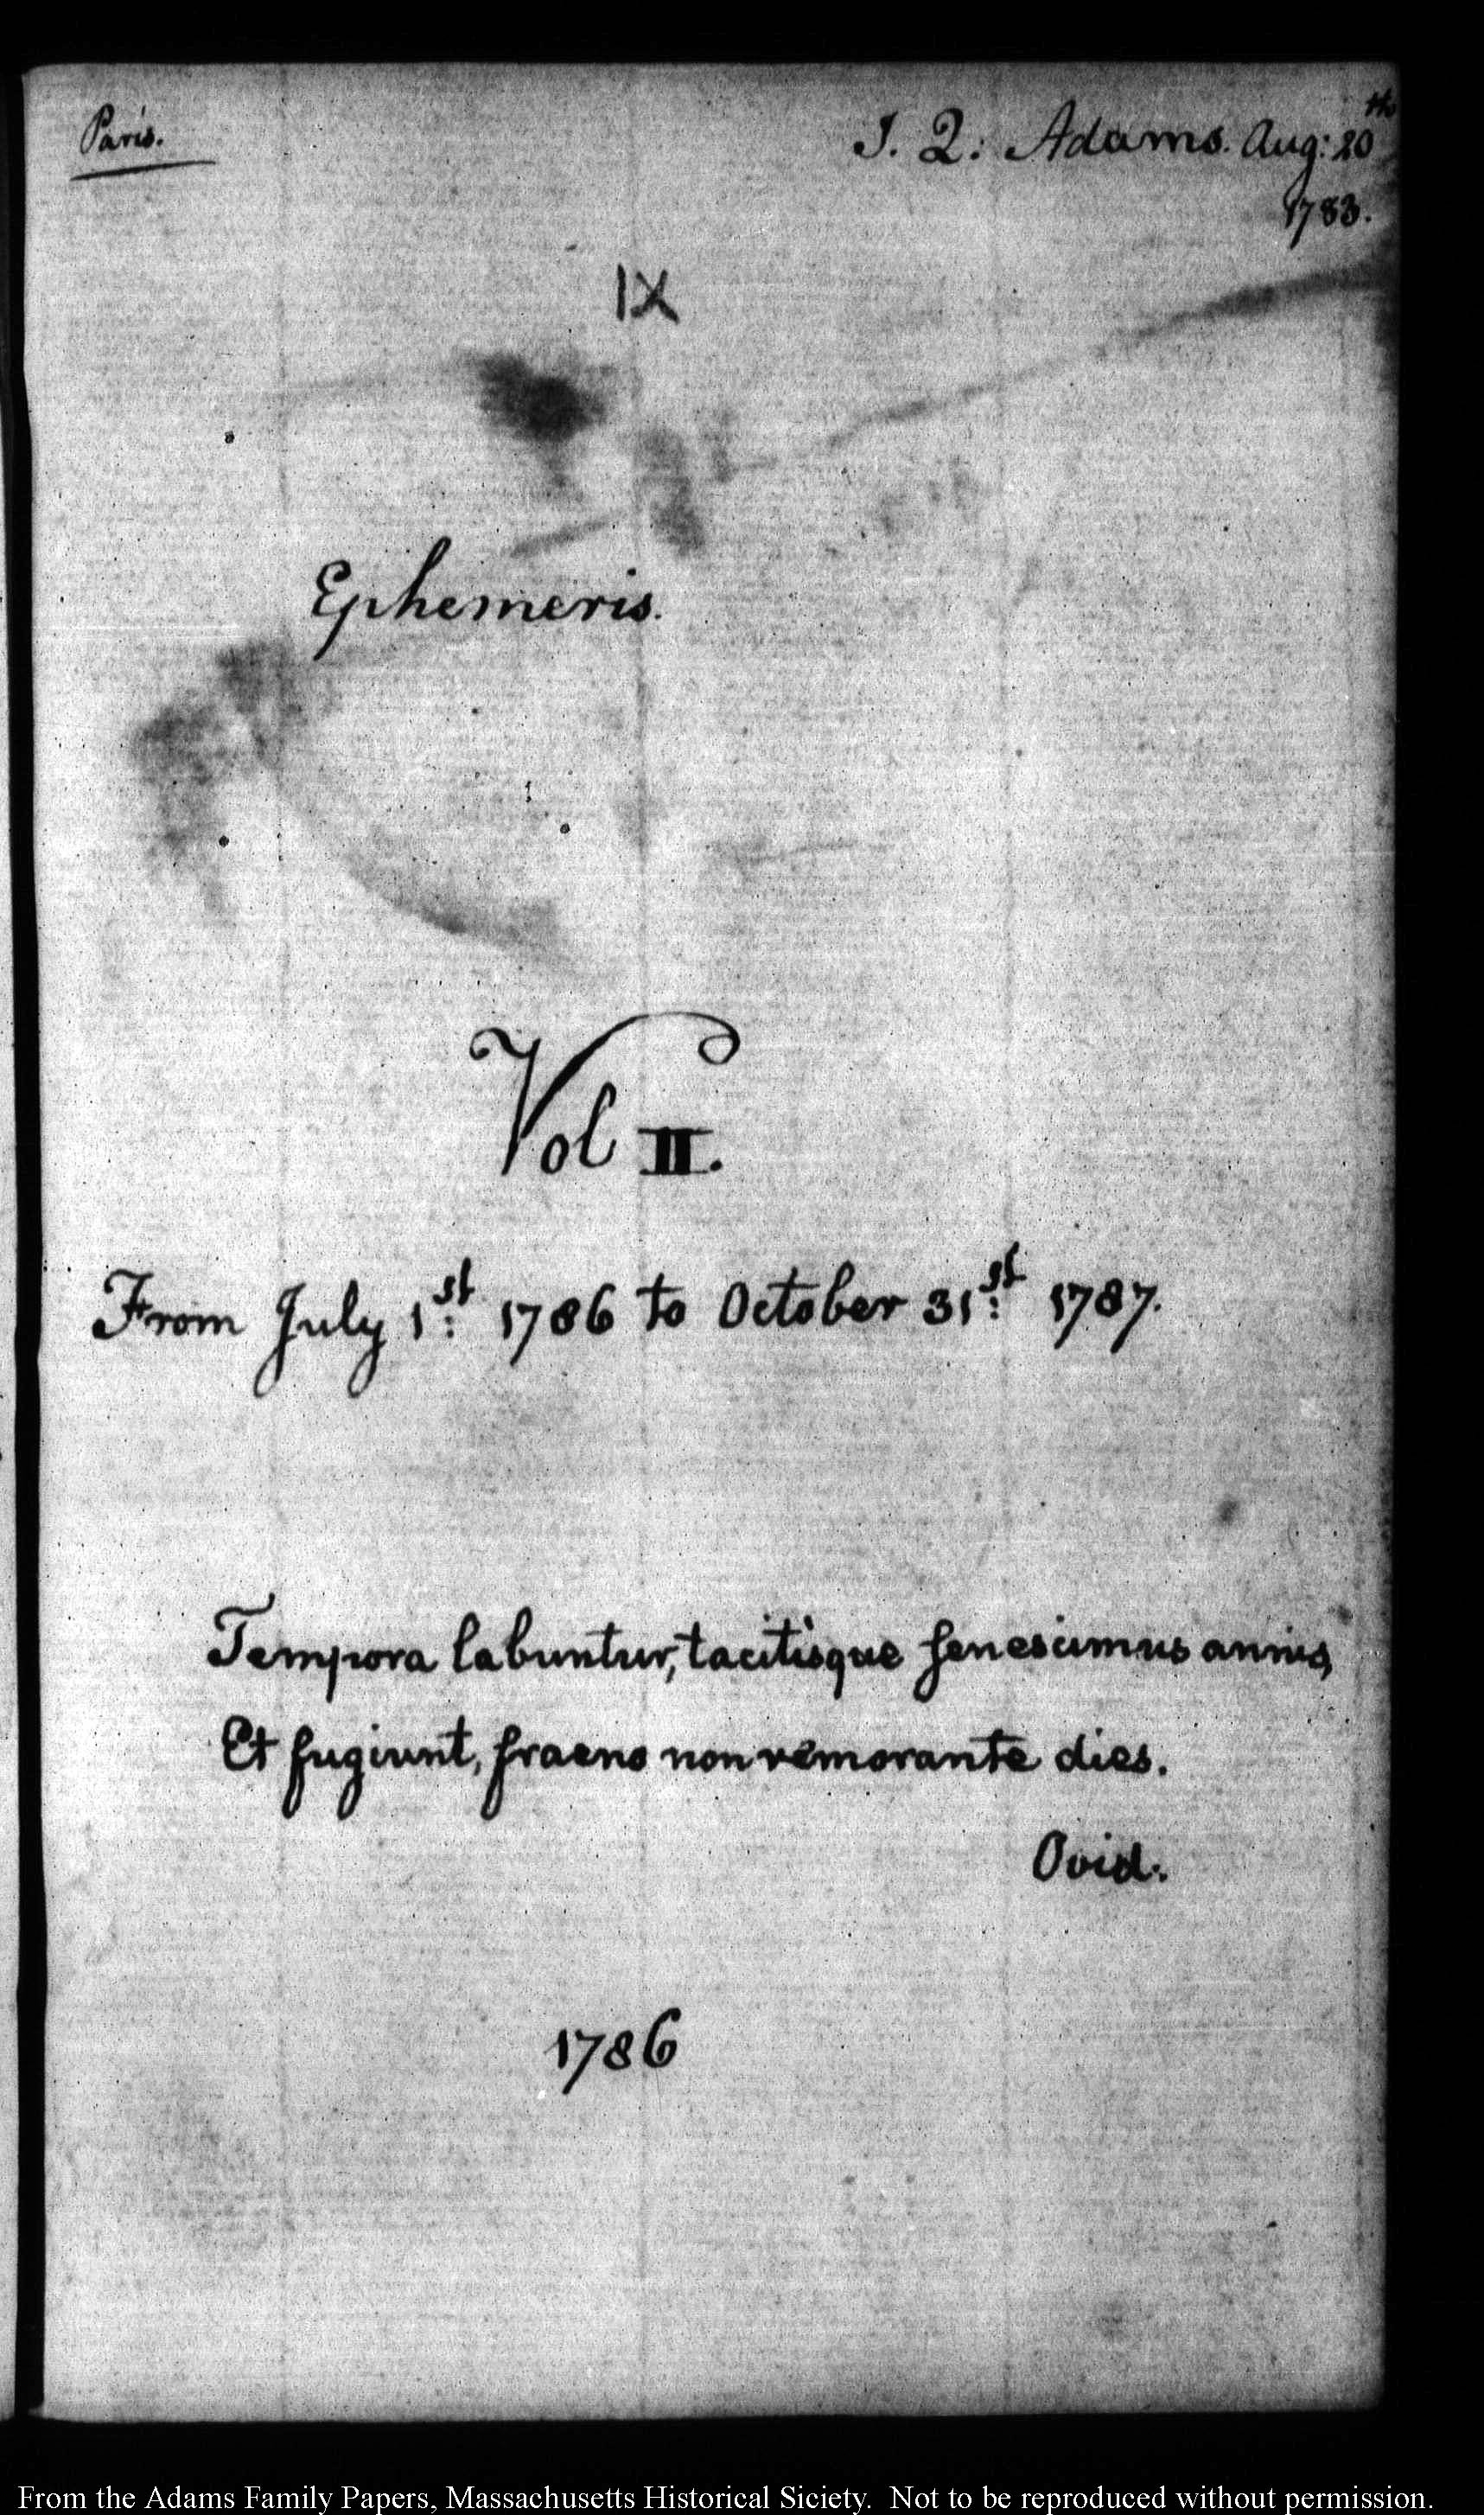 Paris.
J. Q: Adams. Aug: 20th
1783.
IX
Ephemeris.
Vol II.
From July 1st: 1786 to October 31st: 1787.
Tempora labuntur, tacitisque senescimus annis,
Et fugiunt, fraeno non remorante dies.
Ovid.
1786
From the Adams Family Papers, Massachusetts Historical Siciety. Not to be reproduced without permission.